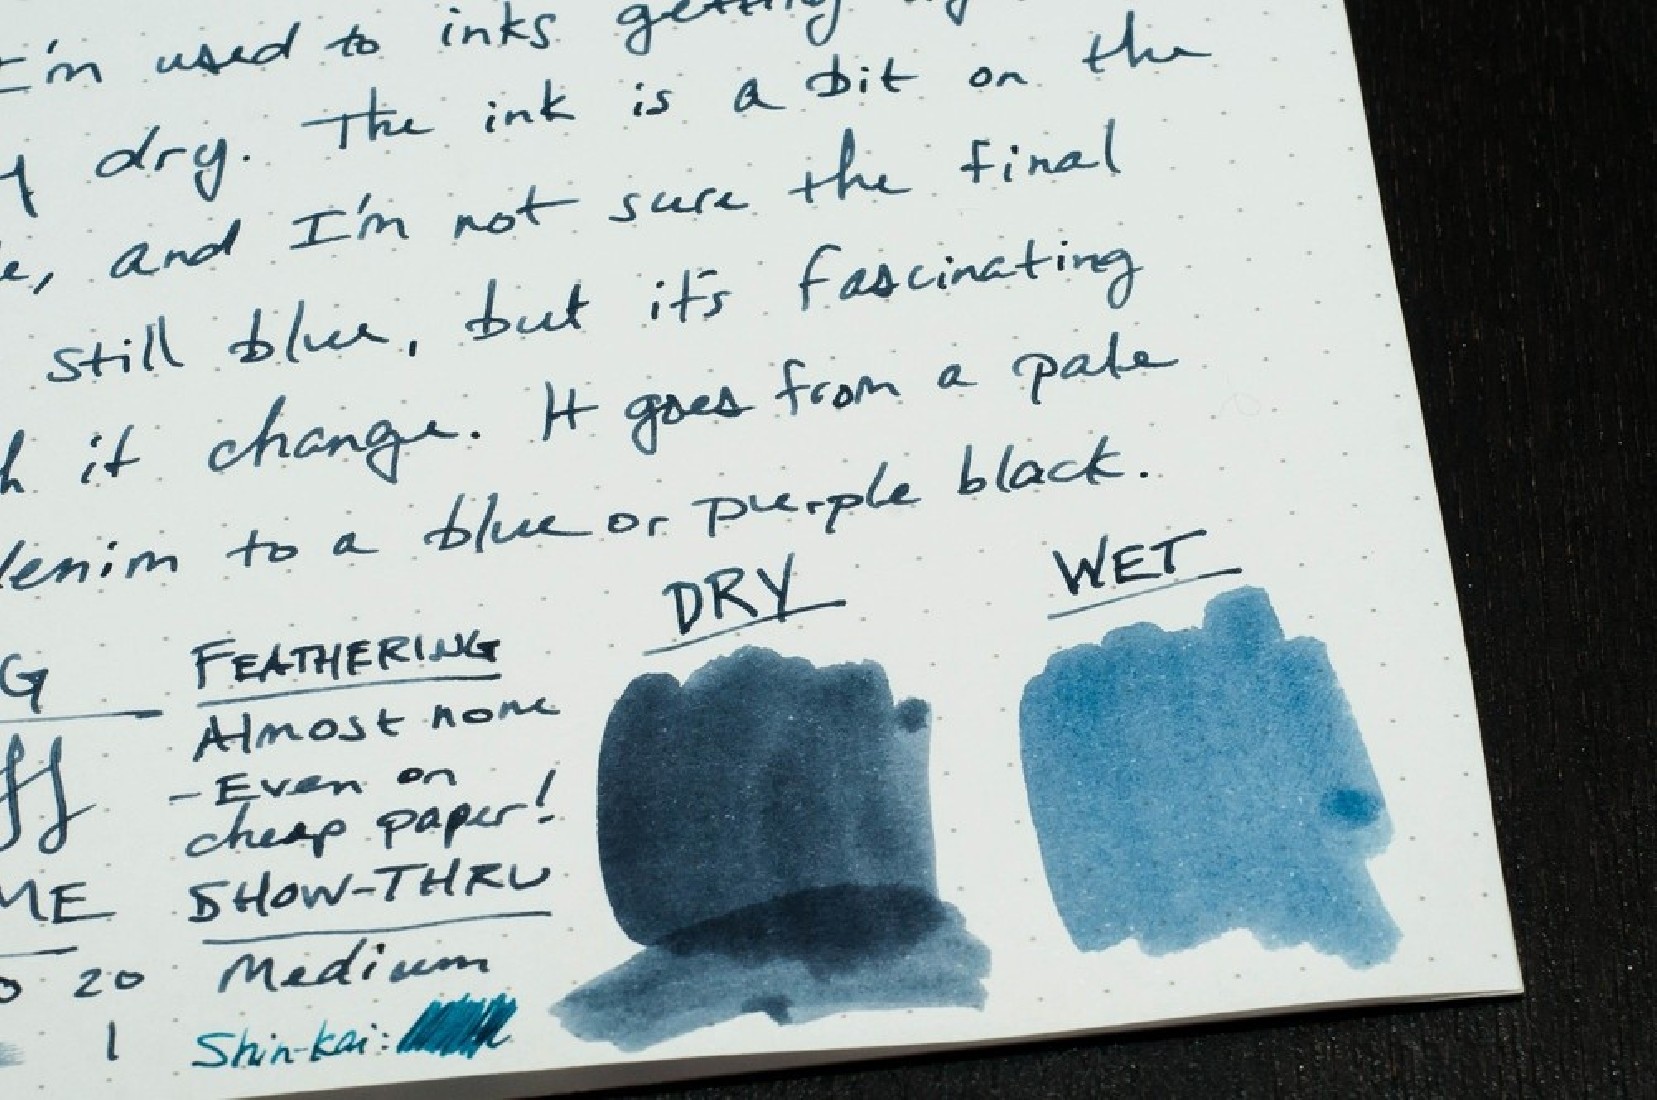 I'm used to inks getting
dry. The ink is a bit on the
and I'm not sure the final
still blue, but it's fascinating
it change. It goes from a pale
denim to a blue or purple black.
DRY WET
G FEATHERING
Almost none
- Even on
cheap paper!
ME SHOW-THRU
20 Medium
1 Shin-kai: